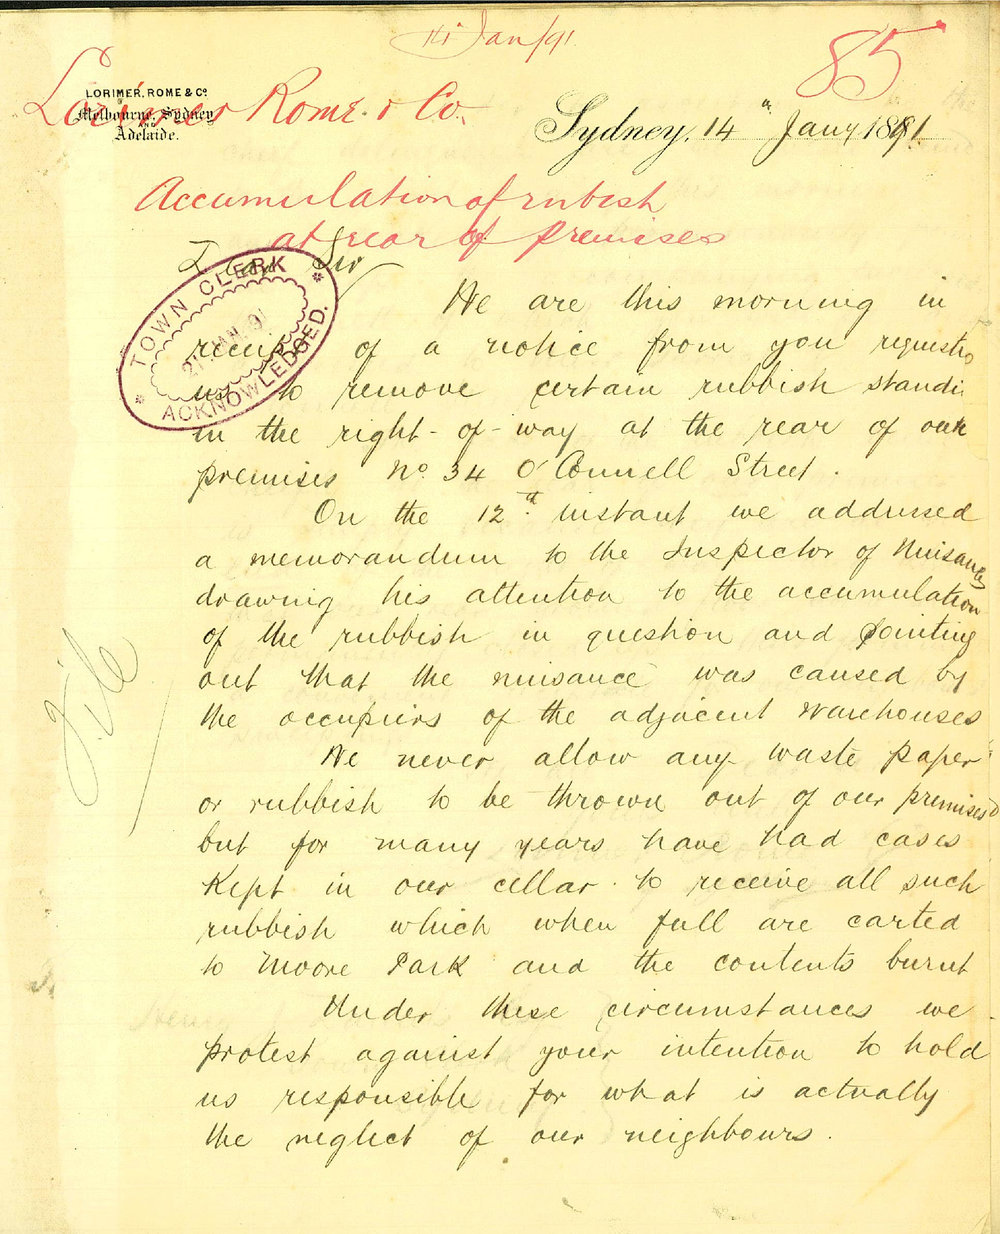 14 Jan/91
85
LORIMER, ROME & Co.
Melbourne, Sydney
AND
Adelaide.
Lorimer Rome & Co.
Sydney, 14th Jany 1891
Accumulation of rubish
at rear of premises
Dear Sir
We are this morning in
receipt of a notice from you requestg
us to remove certain rubbish standi
in the right-of-way at the rear of our
premises No. 34 O'Connell Street.
TOWN CLERK
27 JAN. 91
ACKNOWLEDGED.
On the 12th instant we addressed
a memorandum to the Inspector of Nuisances
drawing his attention to the accumulation
of the rubbish in question and pointing
out that the nuisance was caused by
the occupiers of the adjacent warehouses
We never allow any waste paper
or rubbish to be thrown out of our premises
but for many years have had cases
kept in our cellar to receive all such
rubbish which when full are carted
to Moore Park and the contents burnt
Under these circumstances we
protest against your intention to hold
us responsible for what is actually
the neglect of our neighbours.
File